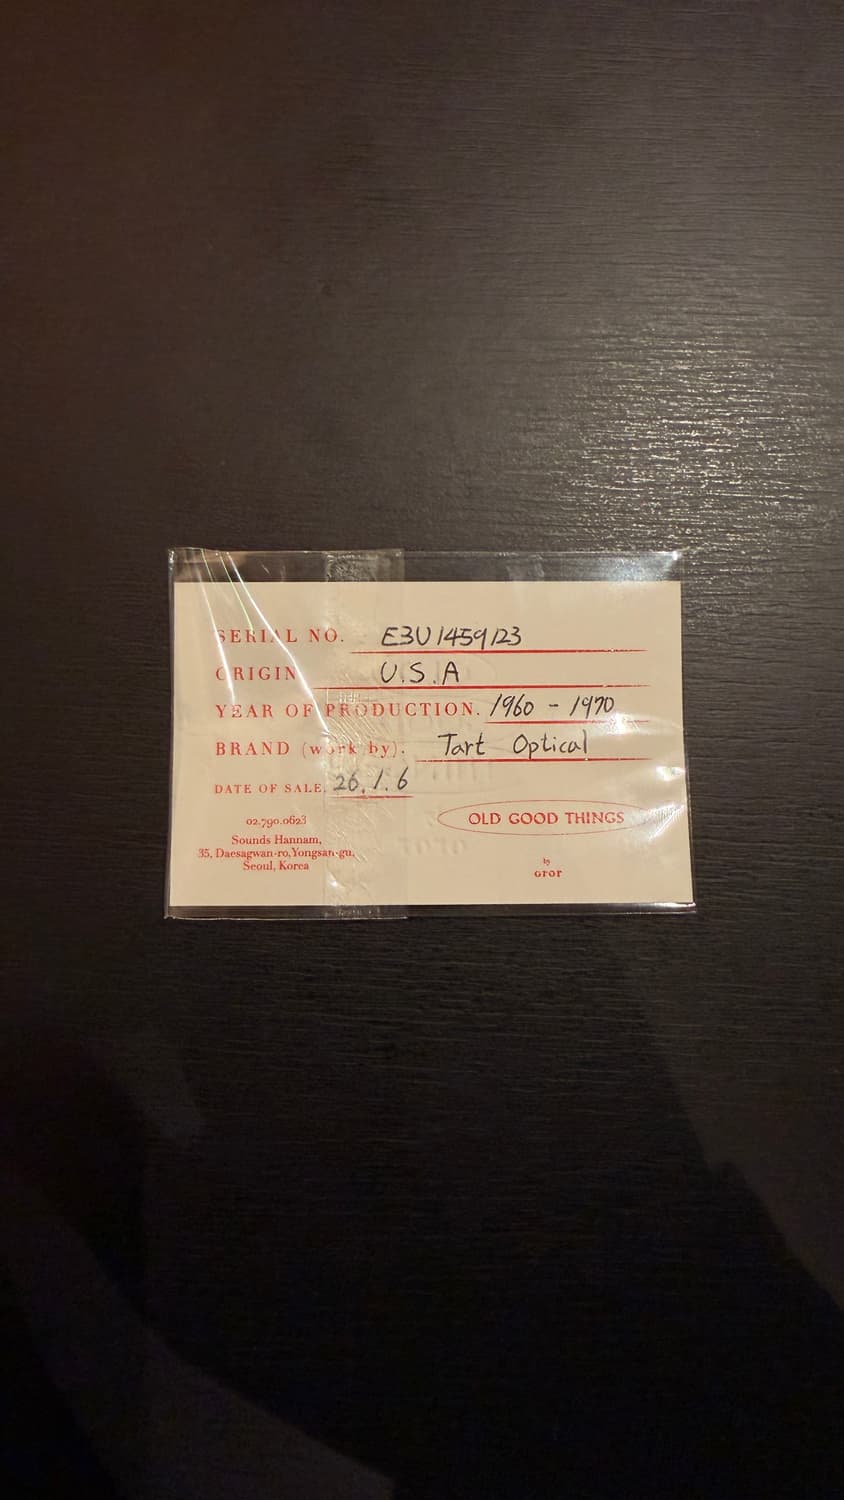 SERIAL NO. E3U1459123
ORIGIN U.S.A
YEAR OF PRODUCTION. 1960 - 1970
BRAND (work by). Tart Optical
DATE OF SALE. 26.1.6
02.790.0623
Sounds Hannam,
35, Daesagwan-ro, Yongsan-gu,
Seoul, Korea
OLD GOOD THINGS
by
oror